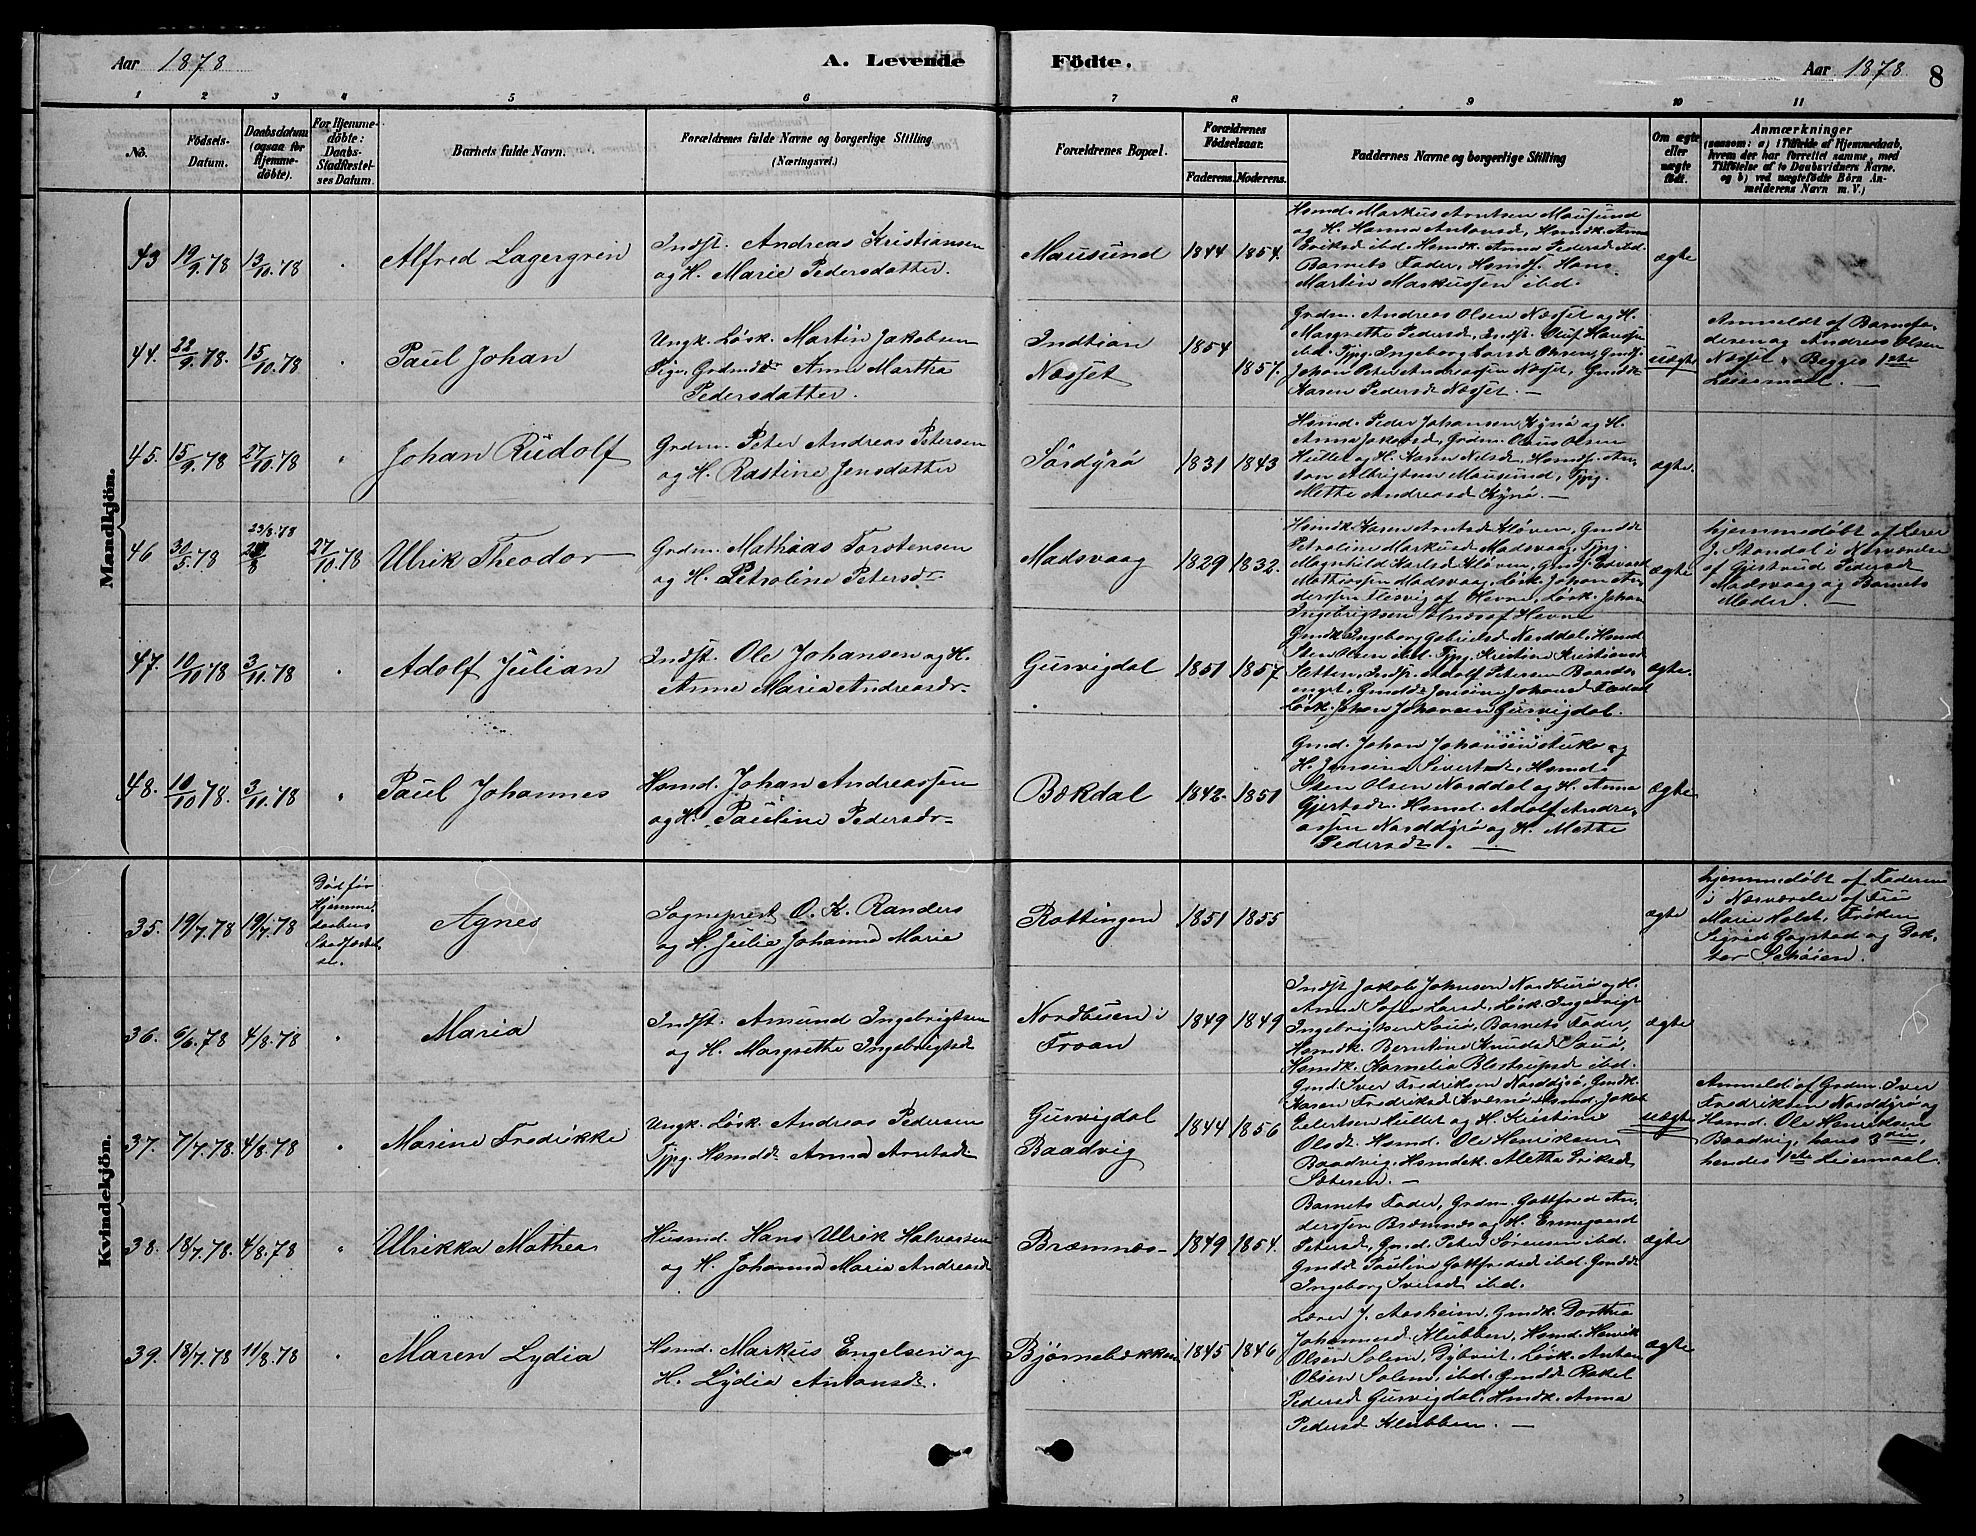 Aar 1878
A. Levende
Födte.
Aar 1878.
8
1 2 3 4 5 6 7 8 9 10 11
No.
Födsels-
Datum.
Daabsdatum
(ogsaa for
Hjemme-
döbte).
For Hjemme-
döbte:
Daabs-
Stadfæstel-
ses Datum.
Barnets fulde Navn.
Forældrenes fulde Navne og borgerlige Stilling
(Næringsvei.)
Forældrenes Bopæl.
Forældrenes
Födselsaar.
Faderens. Moderens.
Faddernes Navne og borgerlige Stilling
Om ægte
eller
uægte
födt.
Anmærkninger
(saasom: a) i Tilfælde af Hjemmedaab,
hvem der har forrettet samme, med
Tilföielse af to Daabsvidners Navne,
og b) ved uægtefödte Börn An-
melderens Navn m. V.)
Mandkjön.
43 19/9.78 13/10.78 " Alfred Lagergren
Indst. Andreas Kristiansen
og H. Marie Pedersdatter.
Mausund 1844 1854.
Hsmd. Markus Arntsen Mausund
og H. Hanna Antonsd, Hsmdk. Anna
Eriksd ibd. Hsmdk. Anna Pedersd ibd.
Barnets Fader, Hsmds. Hans
Martin Markussen ibd.
ægte
44. 22/9.78. 15/10.78 " Paul Johan
Ungk. Løsk. Martin Jakobsen
Pige, Grdmdtr Anne Martha
Pedersdatter.
Indtian
Næsset
1854
1857.
Grdm. Andreas Olsen Næsset og H.
Margrethe Pedersd, Indst. Oluf Hansen
ibd. Tjpg. Ingeborg Larsd
Johan Peter Andreassen Næsset, Gmdd.
Karen Pedersd Næsset. —
uægte
Anmeldt af Barnefa-
deren og Andreas Olsen
Næsset. Begges 1ste
Leiermaal. —
45. 15/9.78 27/10.78 " Johan Rudolf
Grdm. Peter Andreas Petersen
og H. Rastine Jensdatter
Sördyrö 1831 1843
Hsmd. Peder Johansen Kyrø og H.
Anna Jakobsd, Grdm. Olaus Olsen
Hullet og H. Karen Nilsd, Hsmds. An-
ton Albrigtsen Mausund, Tjpg.
Mette Andreasd Kyrø. —
ægte.
46 30/5.78 23/8.78 27/10.78 Ulrik Theodor
Grdm. Mathias Torstensen
og H. Petroline Petersdr.
Madsvaag 1829 1832.
Hsmdk. Karen Arntsd Kløven, Gmdd.
Petroline Markusd Madsvaag, Tjpg.
Magnhild Karlsd Kløven, Gmds. Edvard
Mathiassen Madsvaag, Løsk. Johan An-
derssen Flesvig af Hevne, Løsk. Johan
Ingebrigtsen af Hevne
ægte
hjemmedøbt af Lærer
J. Standal i Nærværelse
af Gjertrud Pedersd
Madsvaag og Barnets
Moder. —
47. 10/10.78 3/11.78 " Adolf Julian
Indst. Ole Johansen og H.
Anne Maria Andreasdr.
Gurvigdal 1851 1857
Gmdk. Ingeborg Gabrielsd Norddal, Hsmd.
Sten Olsen ibd. Tjpg. Kristine Kristiansd
Hetten, Indst. Adolf Petersen Baads-
enget, Gmdd. Jensine Johansd
Løsk. Johan Johansen Gurvigdal.
ægte.
48. 10/10.78. 3/11.78 " Paul Johannes
Hsmd. Johan Andreassen
og H. Pauline Pedersdr.
Bekdal 1842. 1851
Gmd. Johan Johansen Auko og
H. Jensine Sivertsd, Hsmd.
Sten Olsen Norddal og H. Anna
Gjertsdr. Hsmd. Adolf Andre-
assen Norddyrö og H. Mette
Pedersdr. —
ægte
Kvindekjön.
35. 19/7.78 19/7.78
Død før
Hjemme-
daabens
Stadfæstel-
se.
Agnes
Sogneprest O. K. Randers
og H. Julie Johanne Marie
Rottingen 1851 1855
ægte
hjemmedøbt af Faderen
i Nærværelse af Fru
Marie Holst, Frøken
Sigrid Gogstad og Dok-
tor Schøien.
36. 6/6.78 4/8.78 " Maria
Indst. Amund Ingebrigtsen
og H. Margrethe Ingebrigtsd
Nordbuen i
Froan
1849 1849
Indst. Jakob Johnsen Nordburø og H.
Anne Sofie Larsd, Løsk. Ingebrigt
Ingebrigtsen Sauø, Barnets Fader,
Hsmdk. Berntine Knudsd Sauø,
Hsmdk. Kornelia Blostrupsd ibd.
ægte
37. 7/7.78 4/8.78 " Marine Fredrikke
Ungk. Løsk. Andreas Pedersen
Tjpg. Hsmdd. Anna Arntsd
Gurvigdal
Baadvig
1844 1856
Gmd. Iver Fredriksen Norddyrø, Gmdk.
Karen Fredriksd Kværnø, Hsmd. Jakob
Eilertsen Hullet og H. Kristine
Olsdr. Hsmd. Ole Henriksen
Baadvig, Hsmdsk. Aletha Eriksd
Sætеren. —
uægte
Anmeld. af Grdm. Iver
Fredriksen Norddyrø og
Hsmd. Ole Henriksen
Baadvig, hans 3die,
hendes 1ste Leiermaal.
38. 18/7.78. 4/8.78 " Ulrikka Mathea
Husmd. Hans Ulrik Halvorsen
og H. Johanna Maria Andreasd
Bræmnes 1849 1854.
Barnets Fader, Grdm. Gottfred An-
derssen Bræmnes og H. Ermegaard
Petersd, Gmd. Peter Sørensen ibd.
Gmdd. Pauline Gottfredsd ibd. Gmdd.
Ingeborg Iversd ibd.
ægte
39. 18/7.78 11/8.78 " Maren Lydia
Hsmd. Markus Engelsen og
H. Lydia Antonsdr.
Bjørnebækken 1845 1846
Lærer J. Aasheim, Gmdk. Dorthea
Johannesd Klubben, Hsmd. Henrik
Olsen Solem, Dybveit, Løsk. Anton
Olsen Solem, ibd. Gmdd. Rakel
Pedersd Gurvigdal, Hsmdk. Anna
Pedersd Klubben. —
ægte